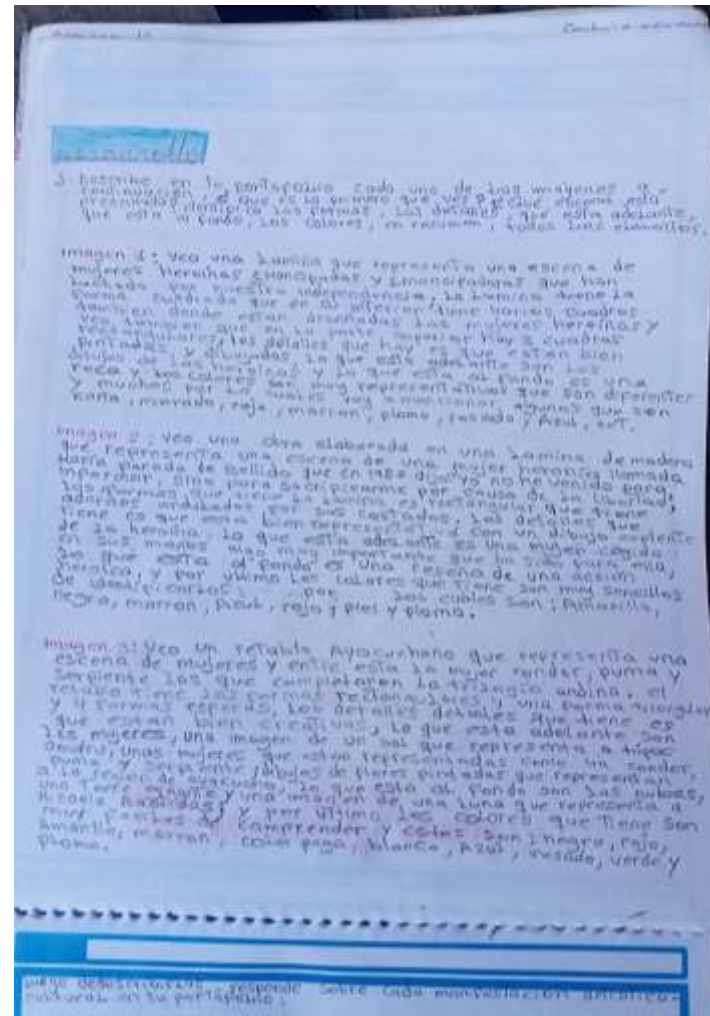 Desarrollo
en tu portafolio cada una de las imágenes a
continuación, que es lo primero que ves, escena esta
las formas, los detalles, que esta adelante,
que esta al fondo, los colores, en resumen, todos los elementos.
imagen 1: veo una lamina que representa una escena de
mujeres heroinas emancipadas y emancipadoras que han
luchado por nuestra independencia, la lamina tiene la
forma cuadrada que en su interior tiene varios cuadros
tambien donde estan diseñadas las mujeres heroinas y
veo tambien que en la parte superior hay 3 cuadros
rectangulares, los detalles que hay es que estan bien
pintadas y dibujadas lo que esta adelante son los
dibujos de las heroinas y lo que esta al fondo es una
roca y los colores son muy representativos que son diferentes
y muchos por lo cuales voy a mencionar algunas que son
morado, rojo, marron, plomo, rosado, Azul, ect.
imagen 2: veo una obra elaborada en una lamina de madera
que representa una escena de una mujer heroina llamada
María parada de Bellido que en dijo yo no he venido para
informar, sino para sacrificarme por causa de la libertad,
las formas que tiene la lamina es rectangular que tiene
adornos ondulados por sus costados, los detalles que
tiene es que esta bien representada con un dibujo
de la heroina, lo que esta adelante es una mujer cogida
en sus manos algo muy importante que ha sido para ella,
lo que esta al fondo es una reseña de una accion
heroica, y por ultimo los colores que tiene son muy sencillos
de identificarlos por los cuales son: Amarillo,
negro, marron, Azul, rojo y piel y plomo.
imagen 3: Veo un retablo Ayacuchano que representa una
escena de mujeres y entre esta la mujer condor, puma y
serpiente las que completaron la trilogia andina. el
retablo tiene las formas rectangulares y una forma triangular
y 4 formas los detalles detalles que tiene es
que estan bien creativas, lo que esta adelante son
las mujeres, una imagen de un sol que representa a tupac
Amaru, unas mujeres que estan representadas como un condor,
puma y serpiente, dibujos de flores pintadas que representan
a la region de ayacucho, lo que esta al fondo son las nubes,
una torre y una imagen de una luna que representa a
Micaela Bastidas, y por último los colores que tiene son
muy faciles de comprender y estos son: negro, rojo,
Amarillo, marron, blanco, Azul, rosado, verde y
plomo.
responde sobre cada manifestación artístico-
cultural en tu portafolio: